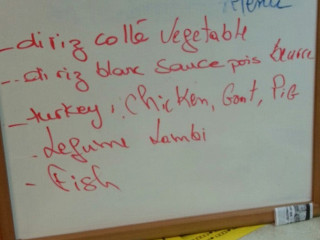 - diriz collé Vegetable
- diriz blanc sauce pois beurre
- turkey, Chicken, Goat, Pig
- Legume Lambi
- Fish